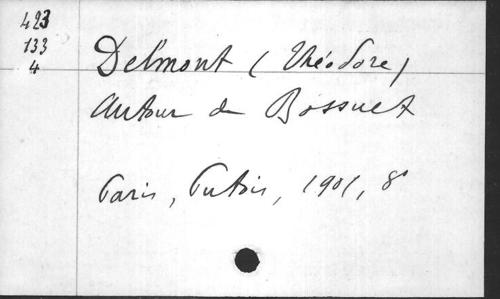 423
133
4
Delmont (Théodore)
Autour de Bossuet
Paris, Putois, 1901, 8°